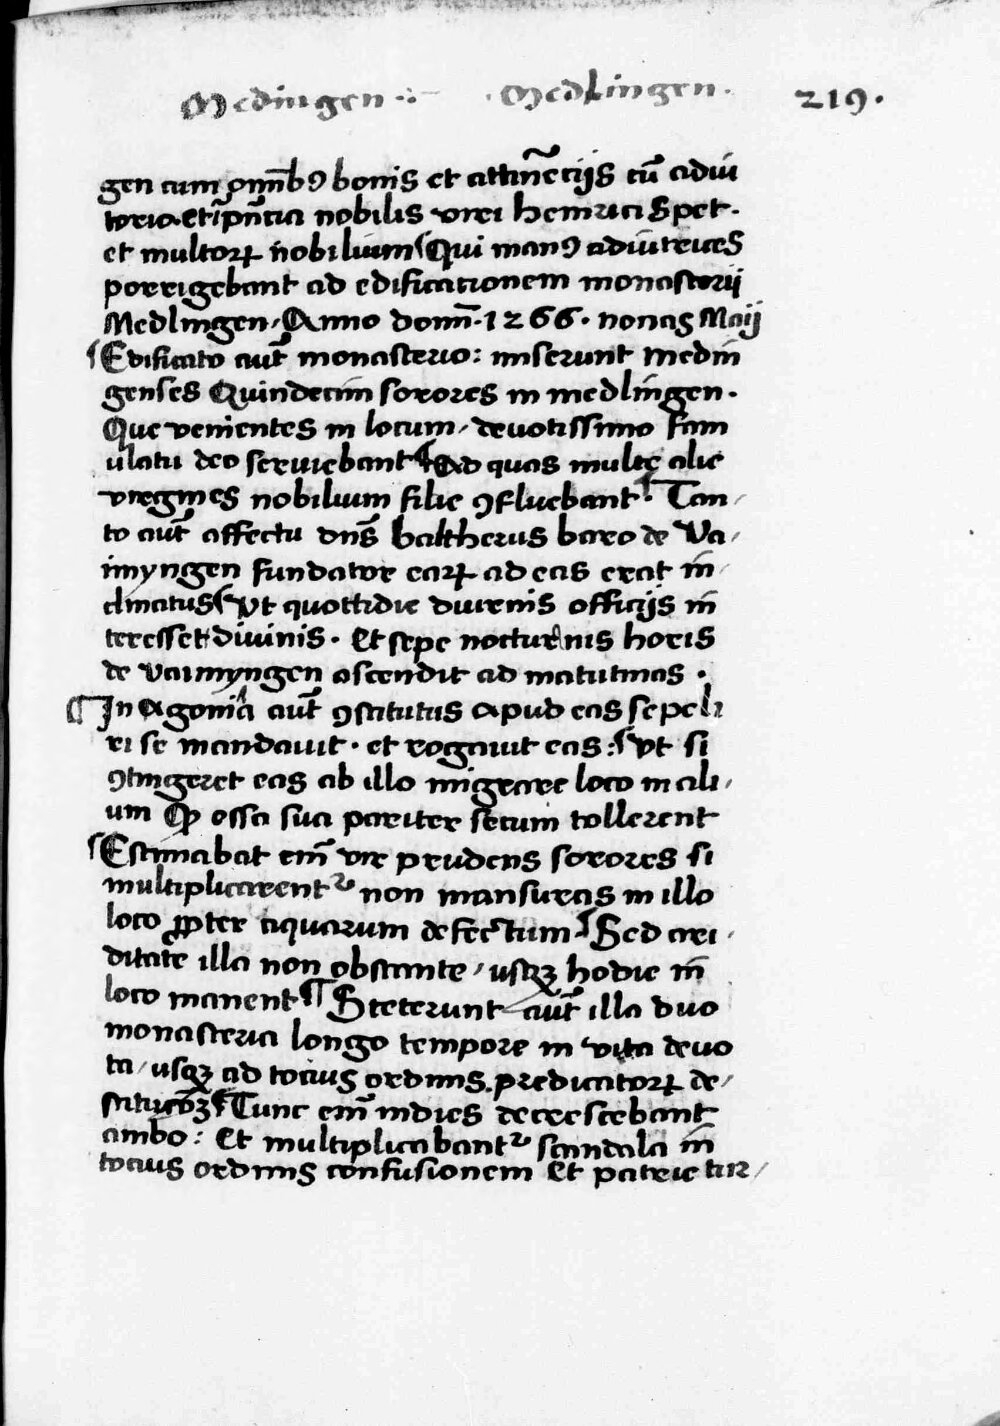 Medingen ∴ · Medlingen · 219 ·
gen cum om̄ibꝰ bonis et attinēciis cū adiu
torio et īpn̄cia nobilis viri heinrici Spet ·
et multoꝝ nobilium Qui manꝰ adiutrices
porrigebant ad edificationem monasterii
Medlingen / Anno domī · 1266 · nonas Maii
Edificato aūt monasterio : miserunt medin
genses Quindecim sorores in medlingen ·
Que venientes in locum / deuotissimo fam
ulatu deo seruiebant ¶ Ad quas multę alie
virgines nobilium filie ꝯfluebant · Tan /
to aūt affectu dn̄s baltherus baro de Va /
imyngen fundator earꝝ ad eas erat in /
clinatus Vt quottidie diurnis officiis in
teresset diuinis · Et sepe nocturnis horis
de vaimyngen ascendit ad matutinas ·
¶ In Agonia aūt ꝯstitutus apud eas sepeli
ri se mandauit · et rogauit eas : vt si
ꝯtingeret eas ab illo migrare loco in ali /
um ꝙ ossa sua pariter secum tollerent
Estimabat em̄ vir prudens sorores si
multiplicarentᷣ non mansuras in illo
loco ꝓpter aquarum defectum · ¶ Sed ari /
ditate illa non obstante / usqꝫ hodie in
loco manent ¶ Steterunt aūt illa duo
monasteria longo tempore in vita deuo
ta / usqꝫ ad tocius ordinis predicatoꝝ de /
stitucōꝫ ¶ Tunc em̄ indies decrescebant
ambo : Et multiplicabantᷣ scandala in
tocius ordinis confusionem Et patrie tur /